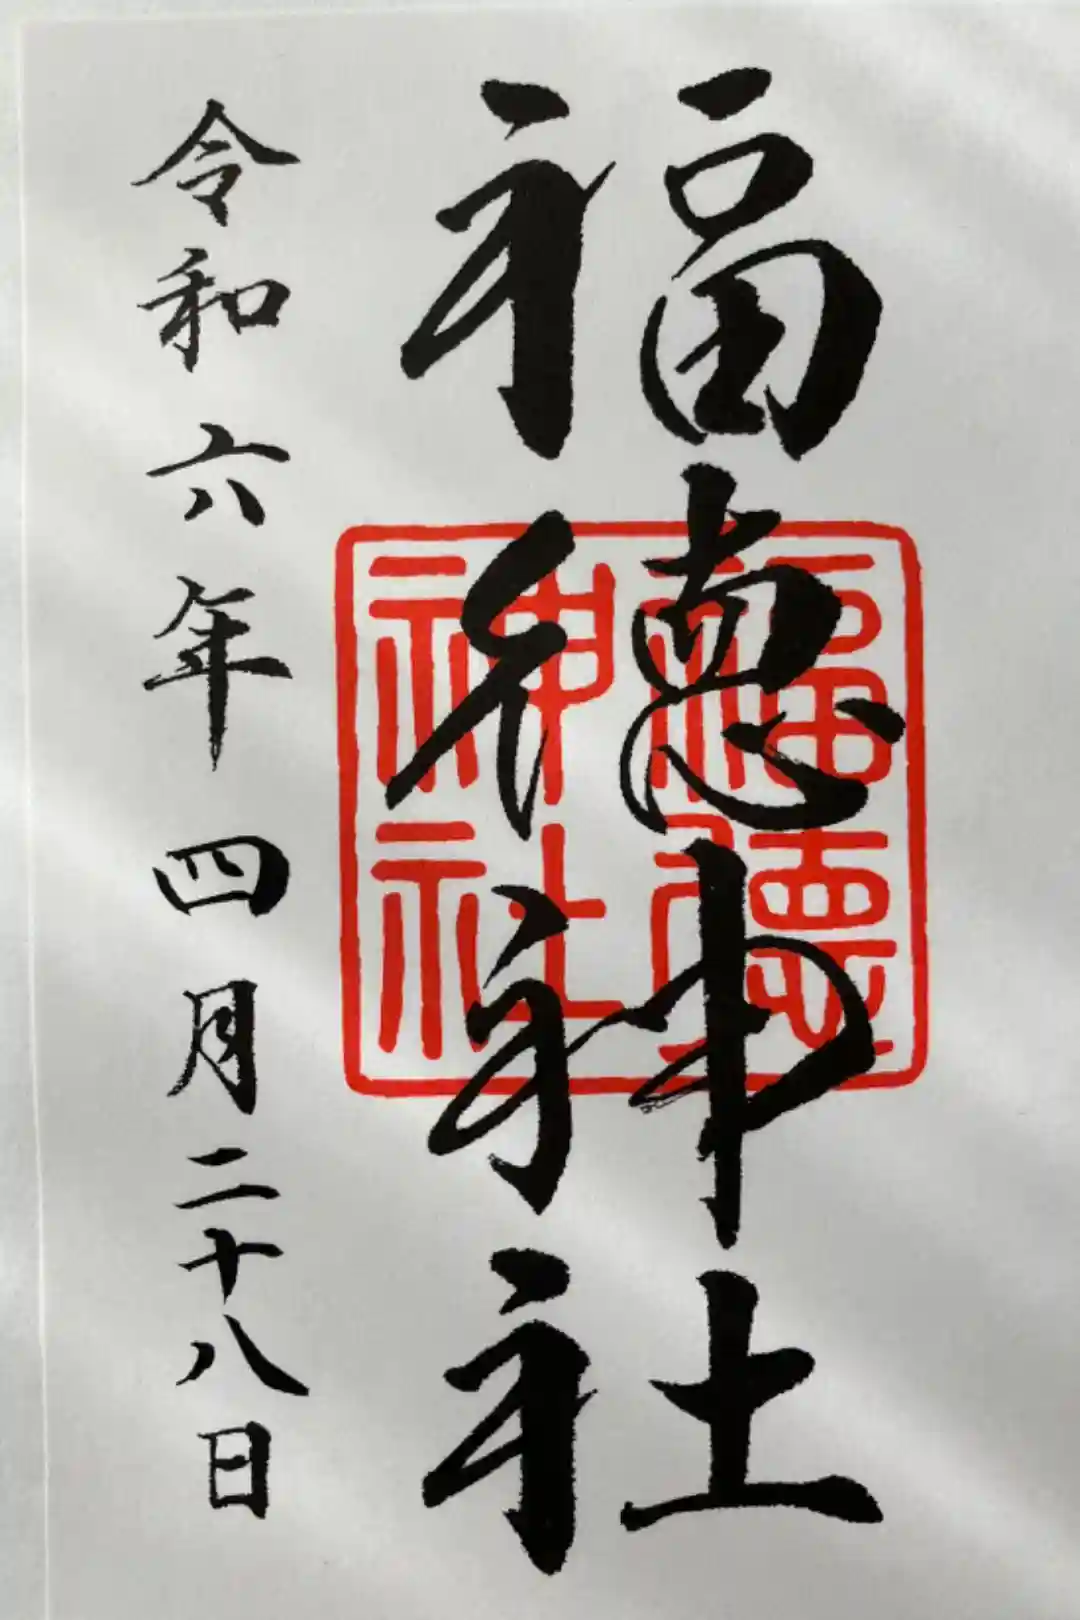 福徳神社
福徳神社
令和六年四月二十八日